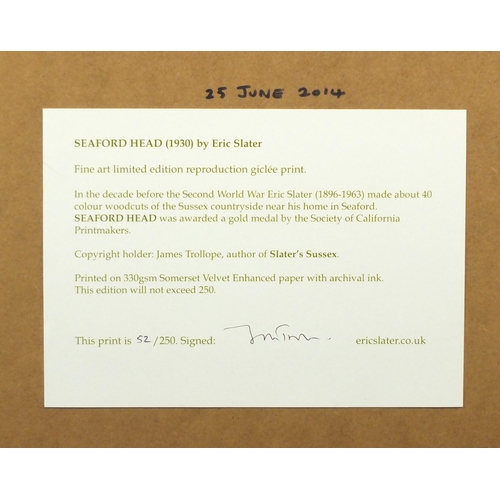 25 JUNE 2014
SEAFORD HEAD (1930) by Eric Slater
Fine art limited edition reproduction giclée print.
In the decade before the Second World War Eric Slater (1896-1963) made about 40
colour woodcuts of the Sussex countryside near his home in Seaford.
SEAFORD HEAD was awarded a gold medal by the Society of California
Printmakers.
Copyright holder: James Trollope, author of Slater's Sussex.
Printed on 330gsm Somerset Velvet Enhanced paper with archival ink.
This edition will not exceed 250.
This print is 52/250. Signed: ericslater.co.uk